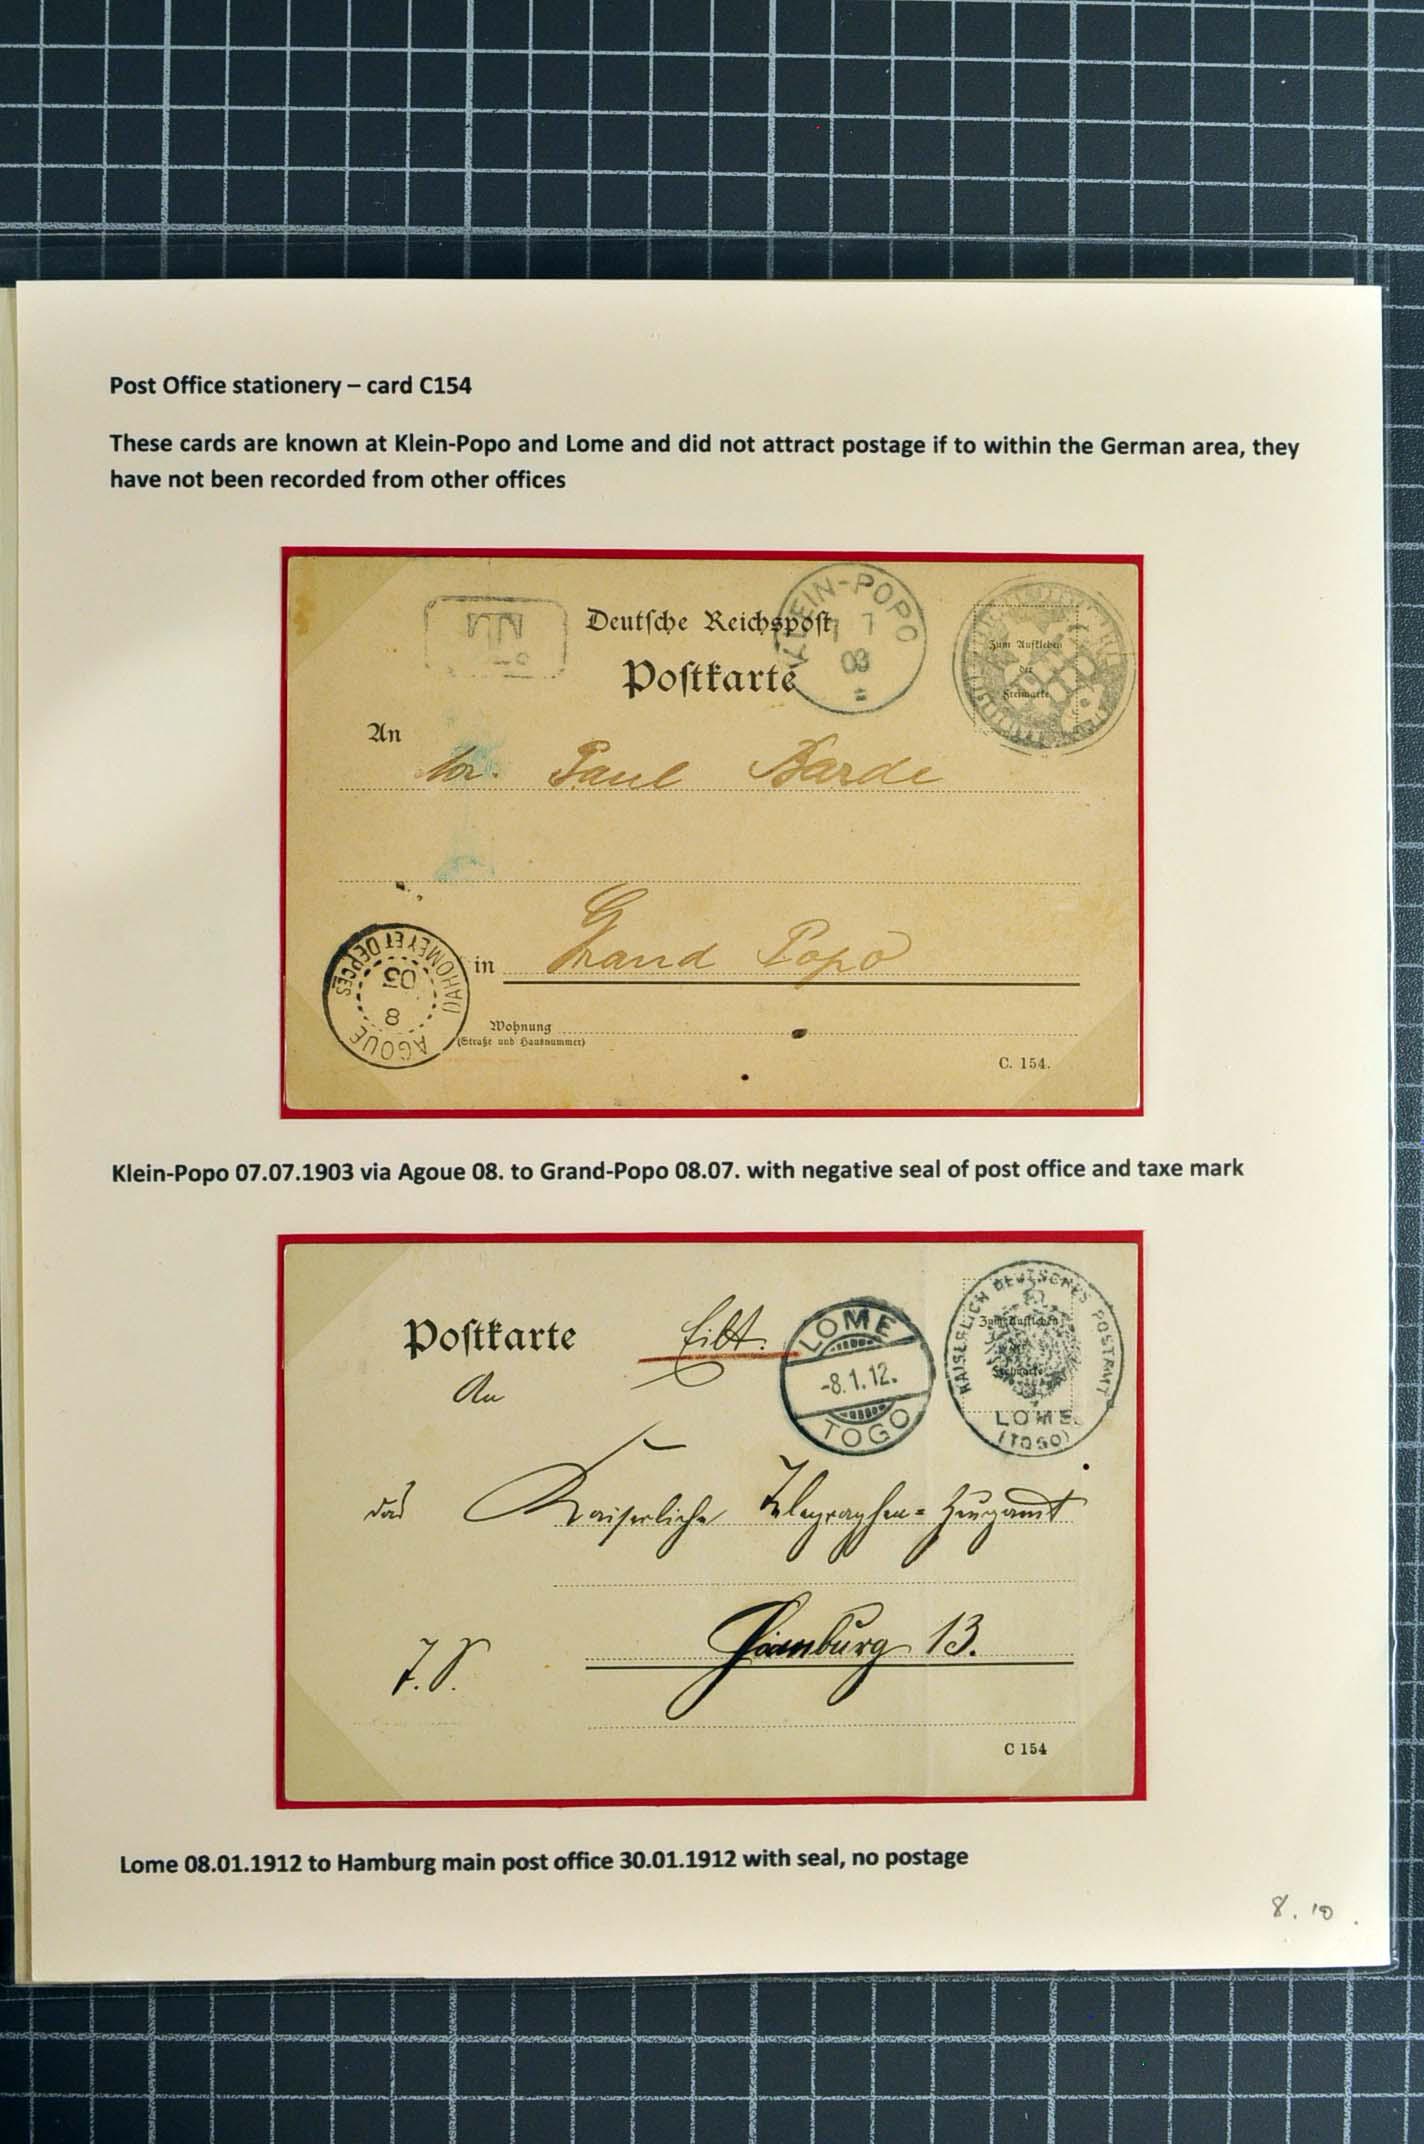 Post Office stationery – card C154
These cards are known at Klein-Popo and Lome and did not attract postage if to within the German area, they
have not been recorded from other offices
Deutsche Reichspost
Postkarte
KLEIN-POPO
7 7
03
Zum Aufkleben
der
Freimarke
An
Paul Barde
in Grand Popo
DAHOMEY ET DEPCES
03
8
AGOUE
Wohnung
(Straße und Hausnummer)
C. 154.
Klein-Popo 07.07.1903 via Agoue 08. to Grand-Popo 08.07. with negative seal of post office and taxe mark
Postkarte
Eilt.
LOME
-8.1.12.
TOGO
KAISERLICH DEUTSCHES POSTAMT
LOME
(TOGO)
Zum Aufkleben
der
Freimarke
An
das Kaiserliche Telegraphen=Zeugamt
Hamburg 13.
C 154
Lome 08.01.1912 to Hamburg main post office 30.01.1912 with seal, no postage
8.10